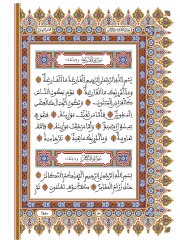 سُورَةُ القَارِعَةِ
بِسْمِ اللَّهِ الرَّحْمَٰنِ الرَّحِيمِ الْقَارِعَةُ مَا الْقَارِعَةُ
وَمَا أَدْرَاكَ مَا الْقَارِعَةُ يَوْمَ يَكُونُ النَّاسُ
كَالْفَرَاشِ الْمَبْثُوثِ وَتَكُونُ الْجِبَالُ كَالْعِهْنِ
الْمَنْفُوشِ فَأَمَّا مَنْ ثَقُلَتْ مَوَازِينُهُ فَهُوَ فِي
عِيشَةٍ رَاضِيَةٍ وَأَمَّا مَنْ خَفَّتْ مَوَازِينُهُ فَأُمُّهُ
هَاوِيَةٌ وَمَا أَدْرَاكَ مَا هِيَهْ نَارٌ حَامِيَةٌ
سُورَةُ التَّكَاثُرِ
بِسْمِ اللَّهِ الرَّحْمَٰنِ الرَّحِيمِ أَلْهَاكُمُ التَّكَاثُرُ
حَتَّىٰ زُرْتُمُ الْمَقَابِرَ كَلَّا سَوْفَ تَعْلَمُونَ ثُمَّ